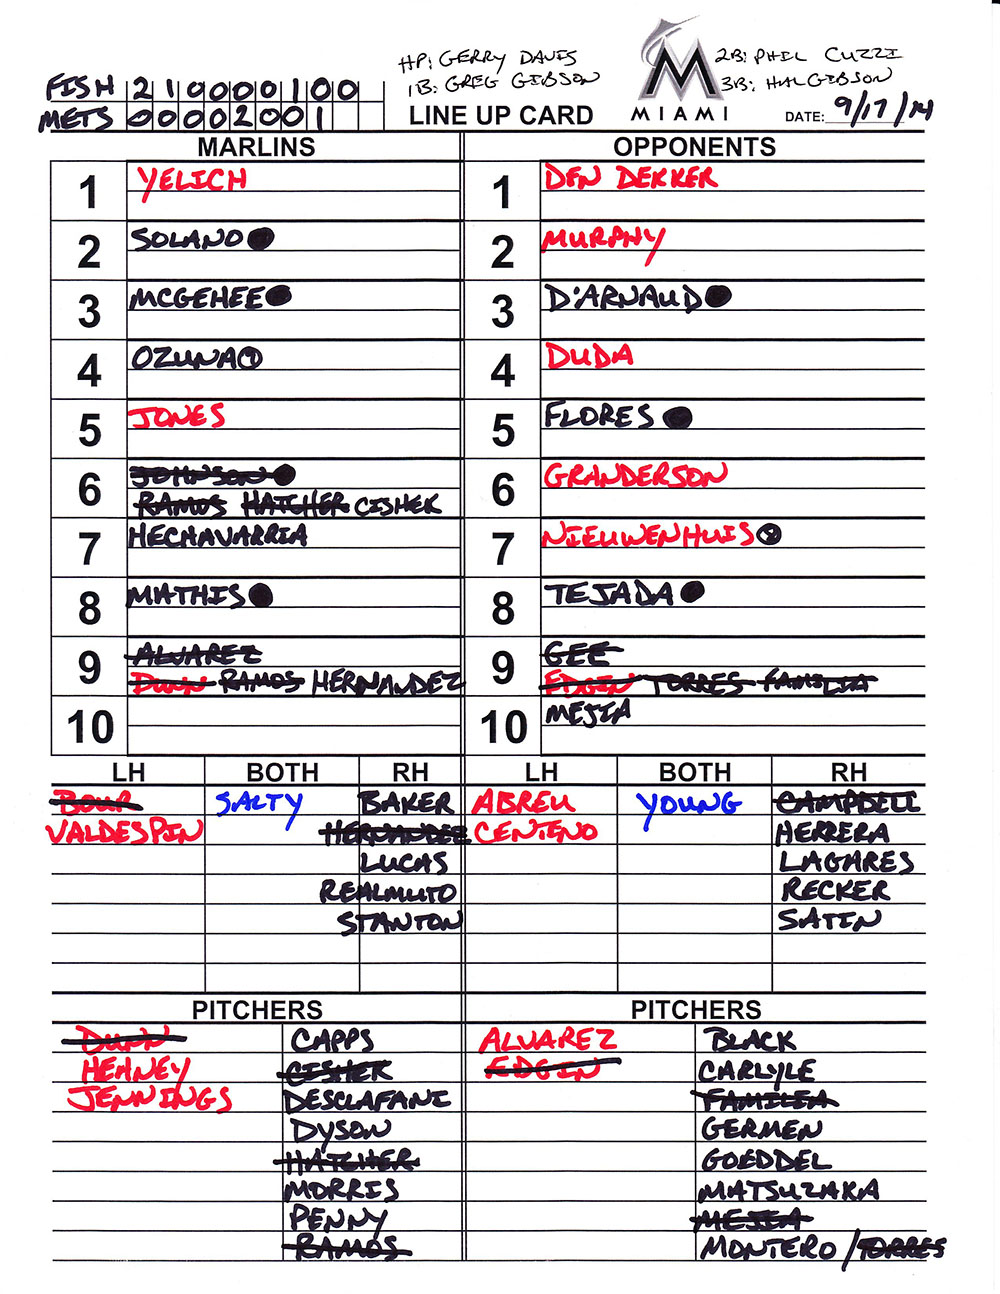 HP: GERRY DAVIS 2B: PHIL CUZZI
1B: GREG GIBSON 3B: HAL GIBSON
FISH 2 1 0 0 0 0 1 0 0
METS 0 0 0 0 2 0 0 1
LINE UP CARD MIAMI DATE: 9/17/14
MARLINS OPPONENTS
1 YELICH 1 DEN DEKKER
2 SOLANO 2 MURPHY
3 MCGEHEE 3 D'ARNAUD
4 OZUNA 4 DUDA
5 JONES 5 FLORES
6 JOHNSON 6 GRANDERSON
RAMOS HATCHER CISHEK
7 HECHAVARRIA 7 NIEUWENHUIS
8 MATHIS 8 TEJADA
9 ALVAREZ 9 GEE
DUNN RAMOS HERNANDEZ EDGIN TORRES FAMILIA
10 10 MEJIA
LH BOTH RH LH BOTH RH
BOUR SALTY BAKER ABREU YOUNG CAMPBELL
VALDESPIN HERNANDEZ CENTENO HERRERA
LUCAS LAGARES
REALMUTO RECKER
STANTON SATIN
PITCHERS PITCHERS
DUNN CAPPS ALVAREZ BLACK
HEANEY CISHEK EDGIN CARLYLE
JENNINGS DESCLAFANI FAMILIA
DYSON GERMEN
HATCHER GOEDDEL
MORRIS MATSUZAKA
PENNY MEJIA
RAMOS MONTERO / TORRES